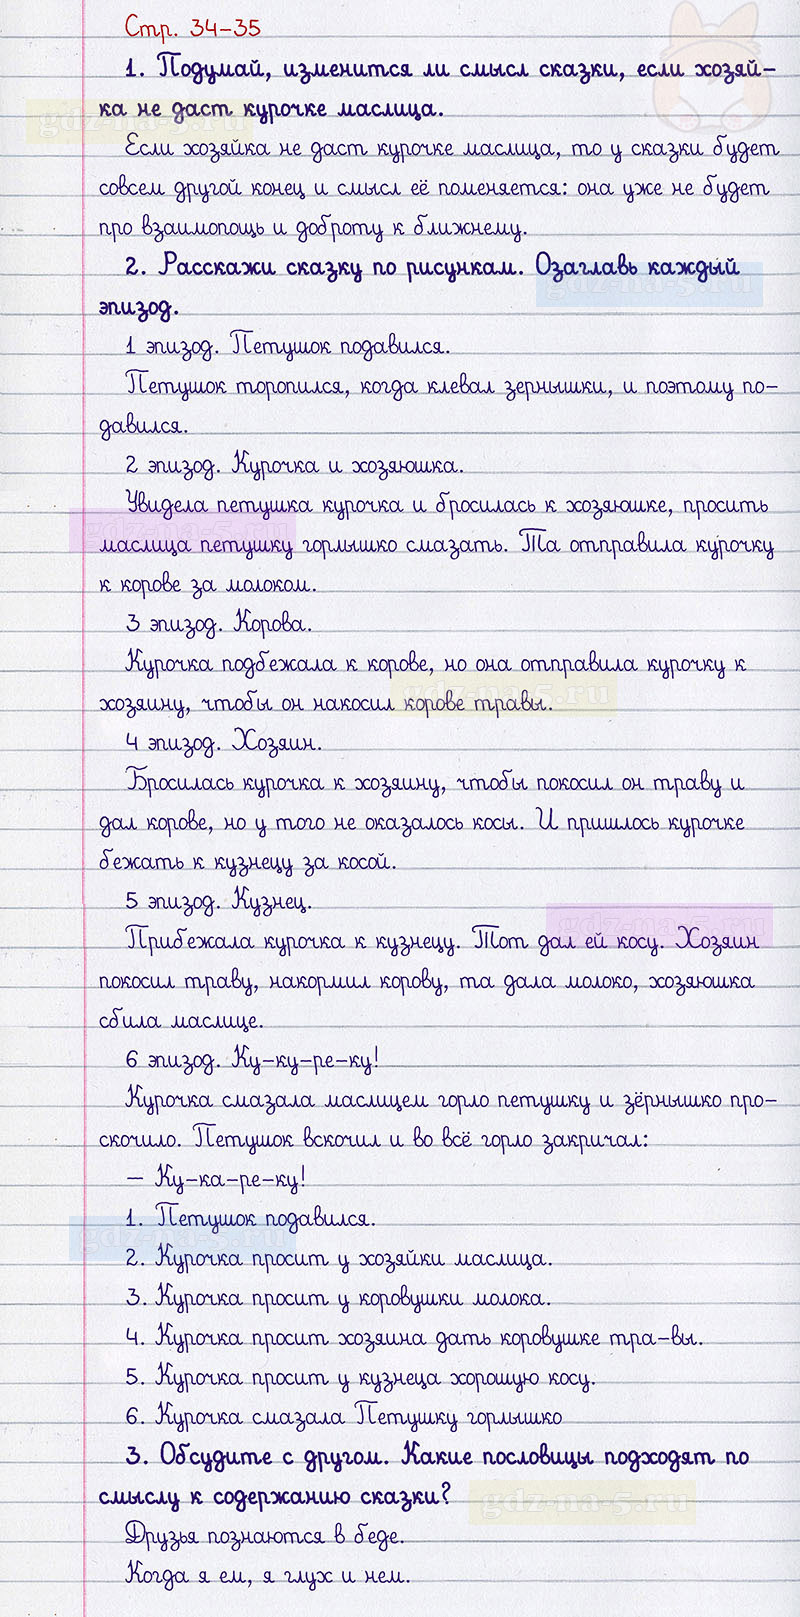 Стр. 34-35
1. Подумай, изменится ли смысл сказки, если хозяй-
ка не даст курочке маслица.
gdz-na-5.ru
Если хозяйка не даст курочке маслица, то у сказки будет
совсем другой конец и смысл её поменяется: она уже не будет
про взаимопощь и доброту к ближнему.
2. Расскажи сказку по рисункам. Озаглавь каждый
gdz-na-5.ru
эпизод.
1 эпизод. Петушок подавился.
Петушок торопился, когда клевал зернышки, и поэтому по-
давился.
2 эпизод. Курочка и хозяюшка.
Увидела петушка курочка и бросилась к хозяюшке, просить
gdz-na-5.ru
маслица петушку горлышко смазать. Та отправила курочку
к корове за молоком.
3 эпизод. Корова.
Курочка подбежала к корове, но она отправила курочку к
gdz-na-5.ru
хозяину, чтобы он накосил корове травы.
4 эпизод. Хозяин.
Бросилась курочка к хозяину, чтобы покосил он траву и
дал корове, но у того не оказалось косы. И пришлось курочке
бежать к кузнецу за косой.
5 эпизод. Кузнец.
gdz-na-5.ru
Прибежала курочка к кузнецу. Тот дал ей косу. Хозяин
покосил траву, накормил корову, та дала молоко, хозяюшка
сбила маслице.
6 эпизод. Ку-ку-ре-ку!
Курочка смазала маслицем горло петушку и зёрнышко про-
скочило. Петушок вскочил и во всё горло закричал:
- Ку-ка-ре-ку!
1. Петушок подавился.
gdz-na-5.ru
2. Курочка просит у хозяйки маслица.
3. Курочка просит у коровушки молока.
4. Курочка просит хозяина дать коровушке тра-вы.
5. Курочка просит у кузнеца хорошую косу.
6. Курочка смазала Петушку горлышко
3. Обсудите с другом. Какие пословицы подходят по
смыслу к содержанию сказки?
gdz-na-5.ru
Друзья познаются в беде.
Когда я ем, я глух и нем.